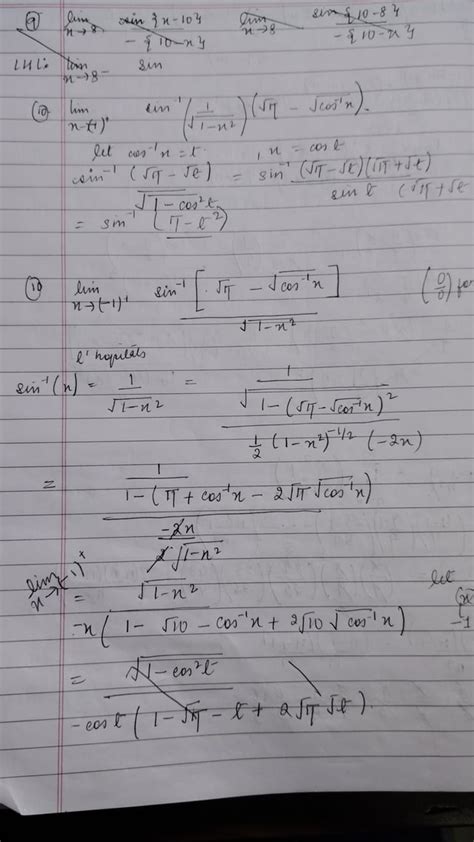 ⑨ lim x→8 sin {x-10} / -{10-x}   lim x→8 sin {10-8} / -{10-x}
LHL: lim x→8- sin
⑩ lim x→(-1)⁺ sin⁻¹ (1/√(1-x²)) (√π - √cos⁻¹x).
let cos⁻¹x = t , x = cos t
sin⁻¹ (√π - √t) / √(1-cos²t) = sin⁻¹ (√π - √t)(√π + √t) / sin t (√π + √t
= sin⁻¹ (π - t²)
⑩ lim x→(-1)⁺ sin⁻¹ [√π - √cos⁻¹x] / √(1-x²) (0/0) for
l'hopitals
sin⁻¹(x) = 1/√(1-x²) = 1/√(1-(√π-√cos⁻¹x)²) / ½ (1-x²)^(-1/2) (-2x)
= 1/(1-(π + cos⁻¹x - 2√π√cos⁻¹x)) / (-2x / 2√(1-x²))
lim x→(-1)⁺ = √(1-x²) / -x(1 - √10 - cos⁻¹x + 2√10 √cos⁻¹x) let
-1
= √(1-cos²t) / -cost (1-√π - t + 2√π √t).